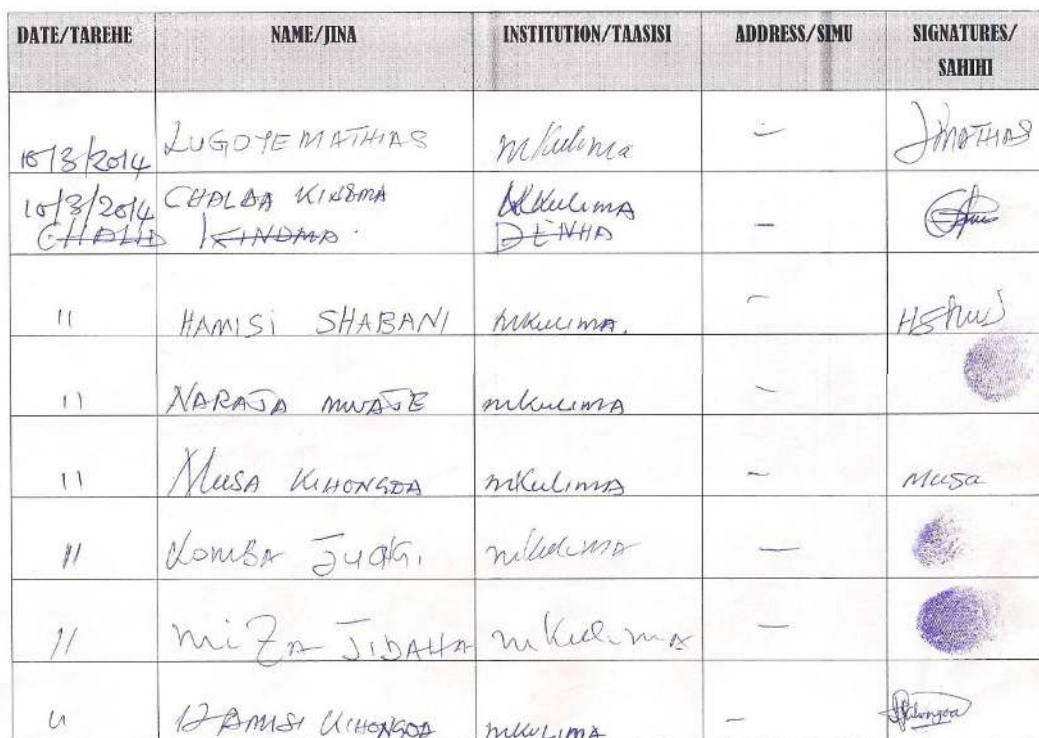 DATE/TAREHE NAME/JINA INSTITUTION/TAASISI ADDRESS/SIMU SIGNATURES/
SAHIHI
10/3/2014 LUGOYE MATHIAS mkulima - JMATHIAS
10/3/2014 CHALDA KINDMA Mkulima -
CHALID KINDMA. DENHA
11 HAMISI SHABANI mkulima. -
11 NARAJA MWAJE mkulima -
11 MUSA KIHONGOA mkulima - MUSA
11 KOMBA mkulima -
11 MiZA JIDAHA mkulima -
11 HAMISI KIHONGOA mkulima -